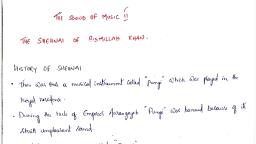 THE SOUND OF MUSIC !!
THE SHEHNAI OF BISMILLAH KHAN.
HISTORY OF SHEHNAI
• There was that a musical instrument called "pungi" which was played in the
royal
• During the rule of Emperor Aurangzeb "Pungi" was banned because of its
unpleasant sound.